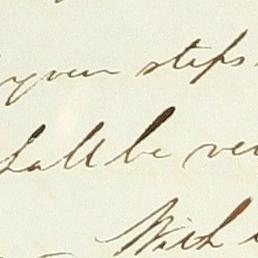 your steps
shall be ver
With